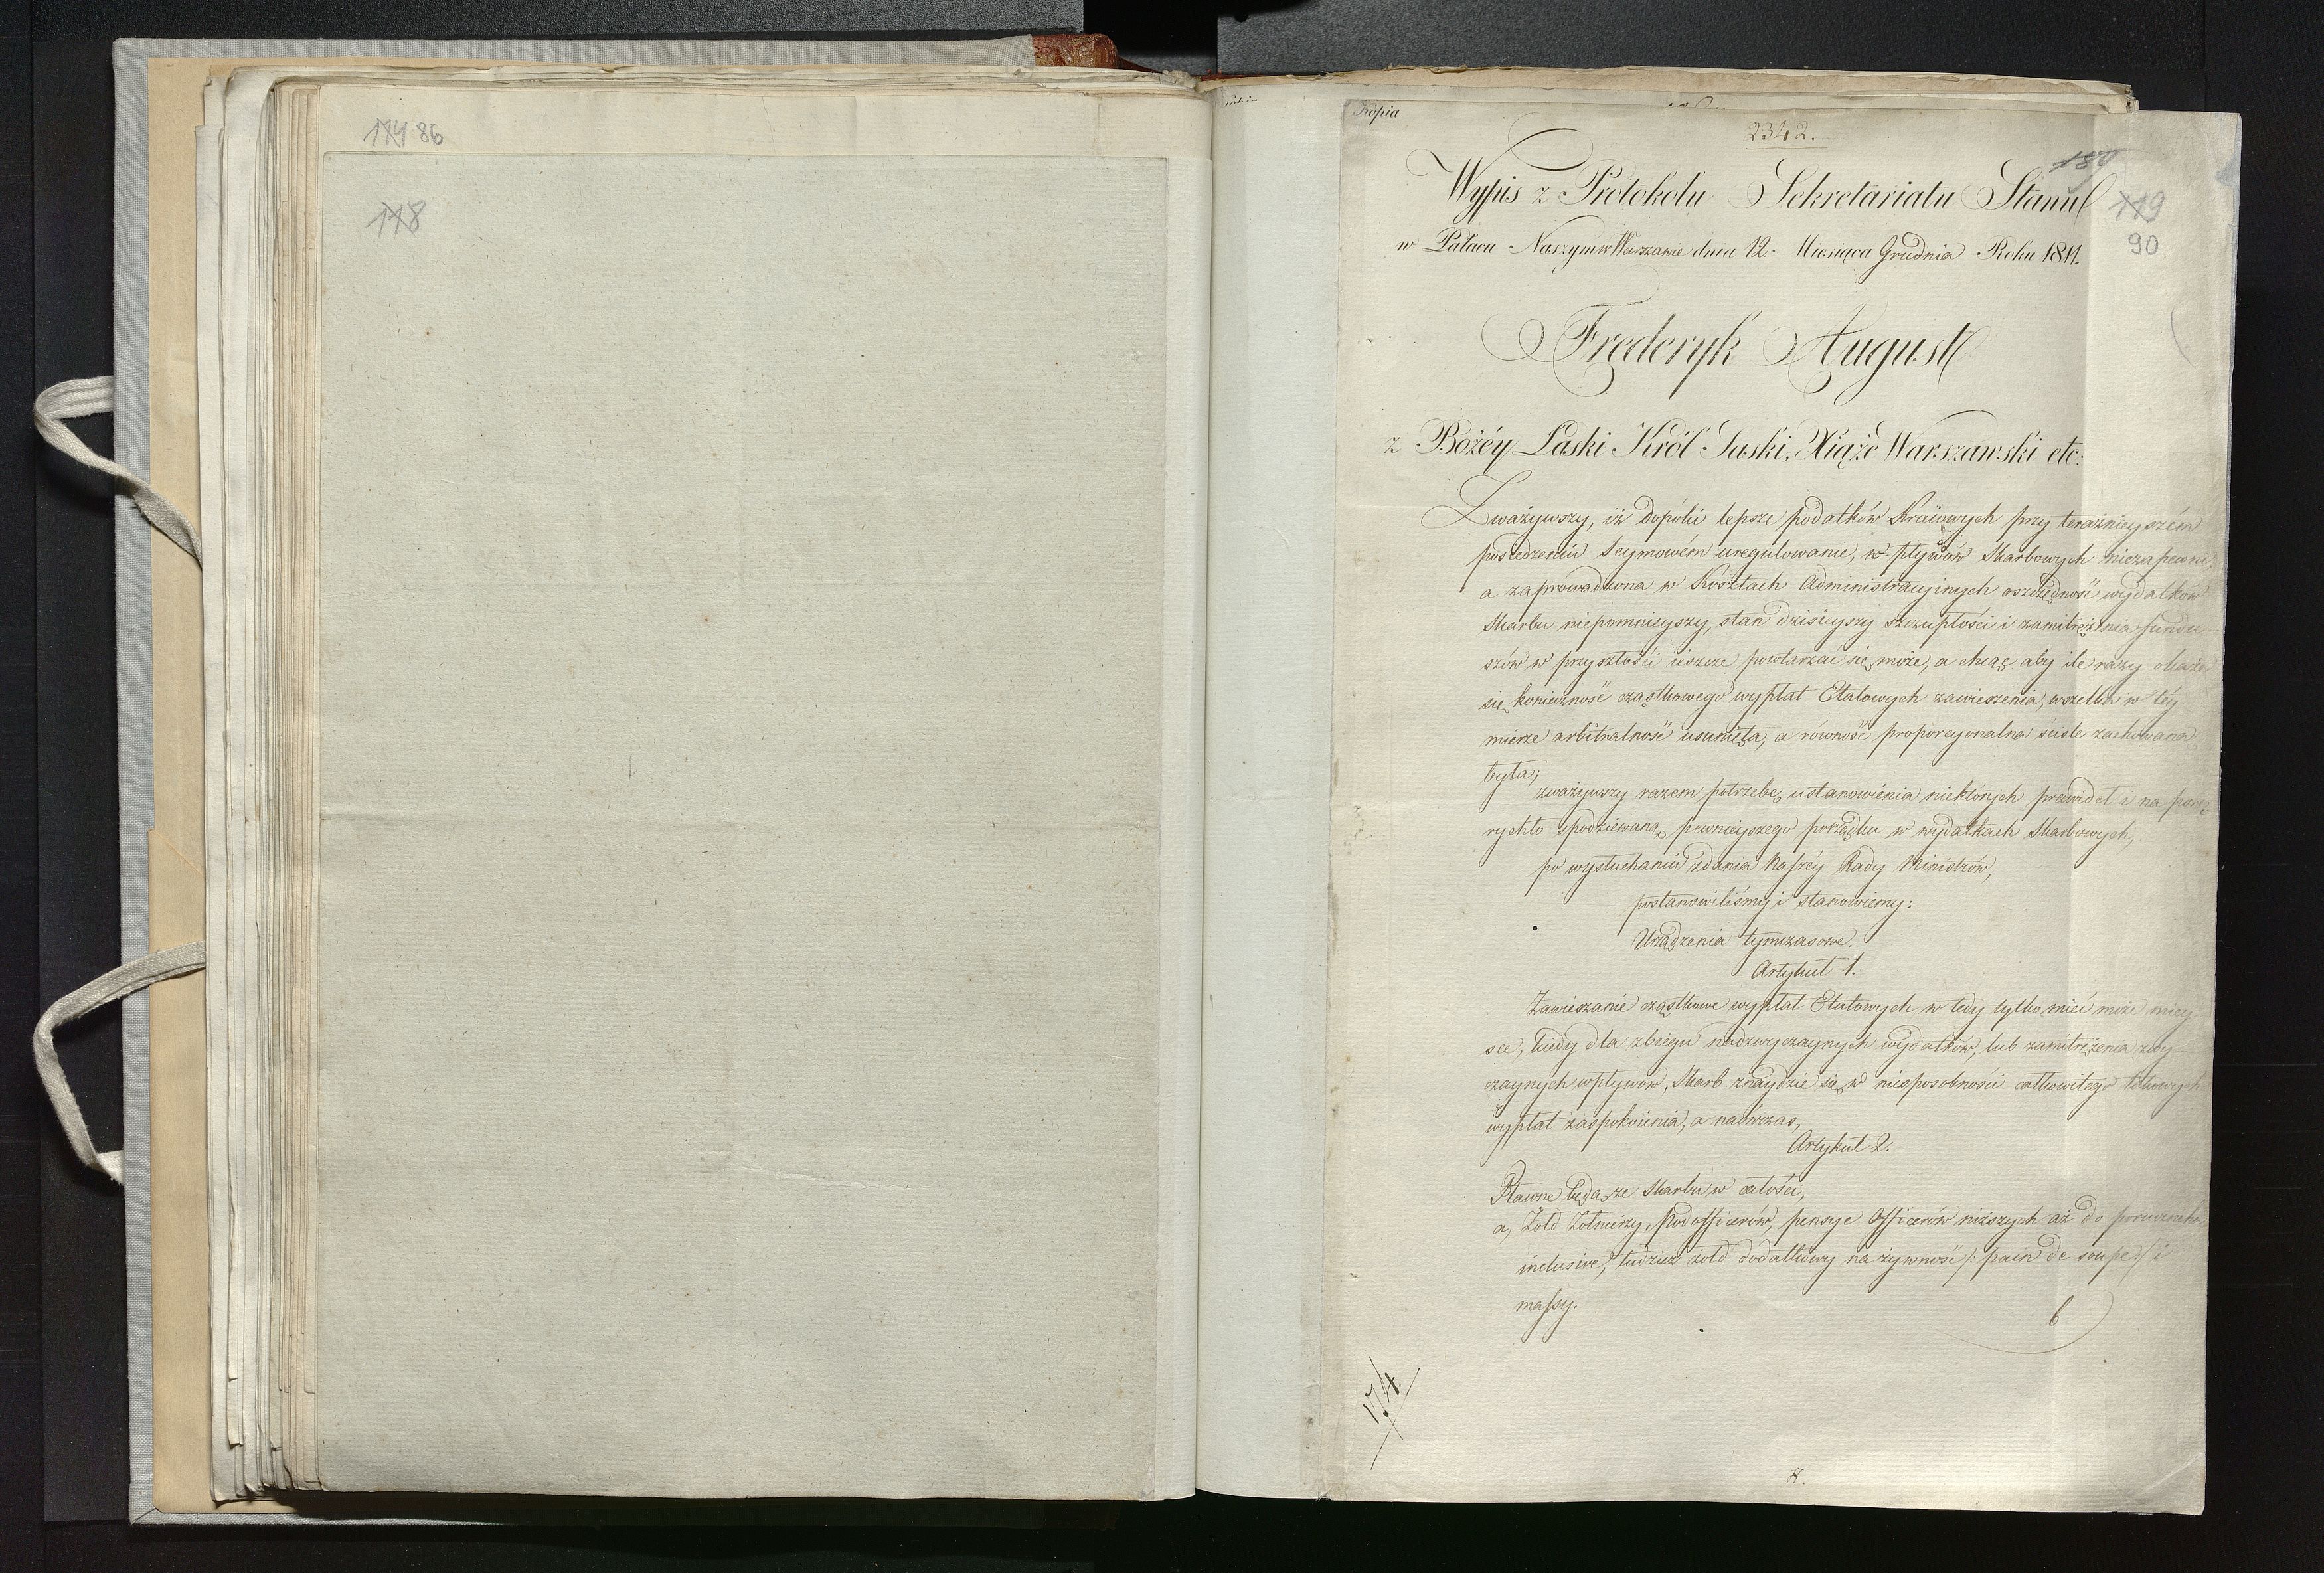 114 86
118
Kopia
2342.
180
Wypis z Protokołu Sekretariatu Stanu
119
w Pałacu Naszym w Warszawie dnia 12. Miesiąca Grudnia Roku 1811.
90
Frederyk August
z Bożéy Łaski Król Saski, Xiąże Warszawski etc:
Zważywszy, iż dopóki lepsze podatków Kraiowych przy teraźnieyszém
posiedzeniu Seymowém uregulowanie, w pływów Skarbowych niezapewni,
a zaprowadzona w Kosztach Administracyinych oszczędność wydatków
Skarbu niepomnieyszy, stan dzisieyszy szczupłości i zamitrężenia fundu
szów w przyszłości ieszcze powtarzać się może, a chcąc aby ile razy okaże
się konieczność cząstkowego wypłat Etatowych zawieszenia, wszelka w téy
mierze arbitralność usunięta, a równość proporcyonalna ściśle zachowana
była;
zważywszy razem potrzebę ustanowienia niektórych prawideł i na porę
rychło spodziewaną pewnieyszego porządku w wydatkach Skarbowych,
po wysłuchaniu zdania Naszéy Rady Ministrów,
postanowiliśmy i stanowiemy:
Urządzenia tymczasowe.
Artykuł 1.
Zawieszanie cząstkowe wypłat Etatowych w tedy tylko mieć może miey
sce, kiedy dla zbiegu nadzwyczaynych wydatków, lub zamitrężenia zwy
czaynych wpływów, Skarb znaydzie się w niesposobności całkowitego
wypłat zaspokoienia, a naówczas,
Artykuł 2.
Płacone będą ze Skarbu w całości,
a, Żołd Żołnierzy, Podofficerów, pensye Officerów niższych aż do porucznika
inclusive, tudzież żołd dodatkowy na żywność /: pain de soupe :/ i
massy.
b
174.